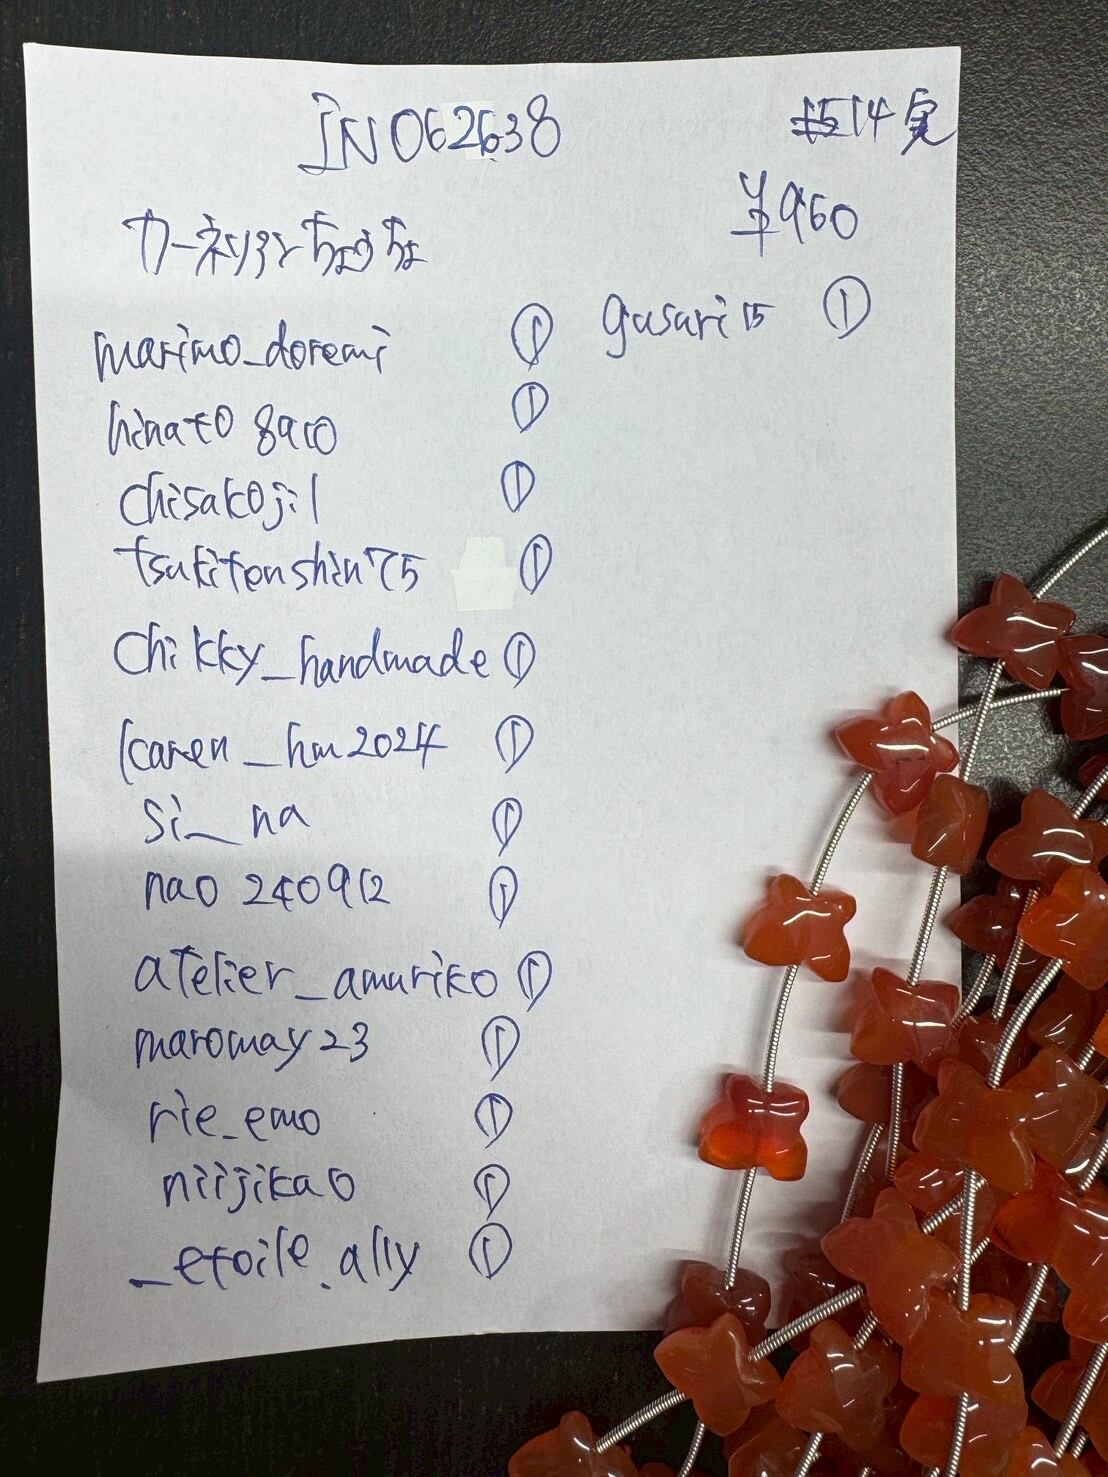 IN062638
14完
¥960
カーネリアンちょうちょ
marimo_doremi ①
hinato8910 ①
chisakoji1 ①
tsukitenshin75 ①
chikky_handmade ①
karen_hm2024 ①
si_na ①
nao240912 ①
atelier_amuriko ①
maromay23 ①
rie_emo ①
niijikao ①
_etoile.ally ①
gusari15 ①